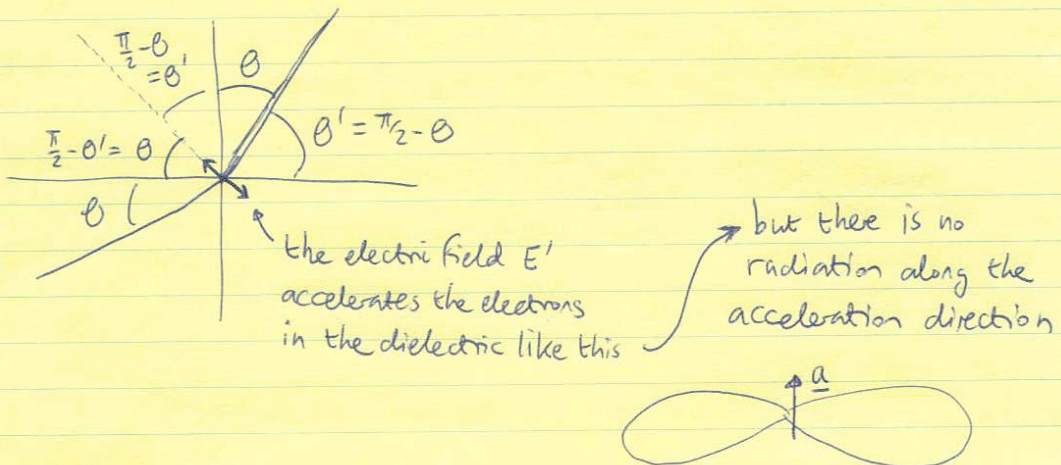 π/2 - θ
= θ'
θ
θ' = π/2 - θ
π/2 - θ' = θ
θ
the electri field E'
accelerates the electrons
in the dielectric like this
but there is no
radiation along the
acceleration direction
a